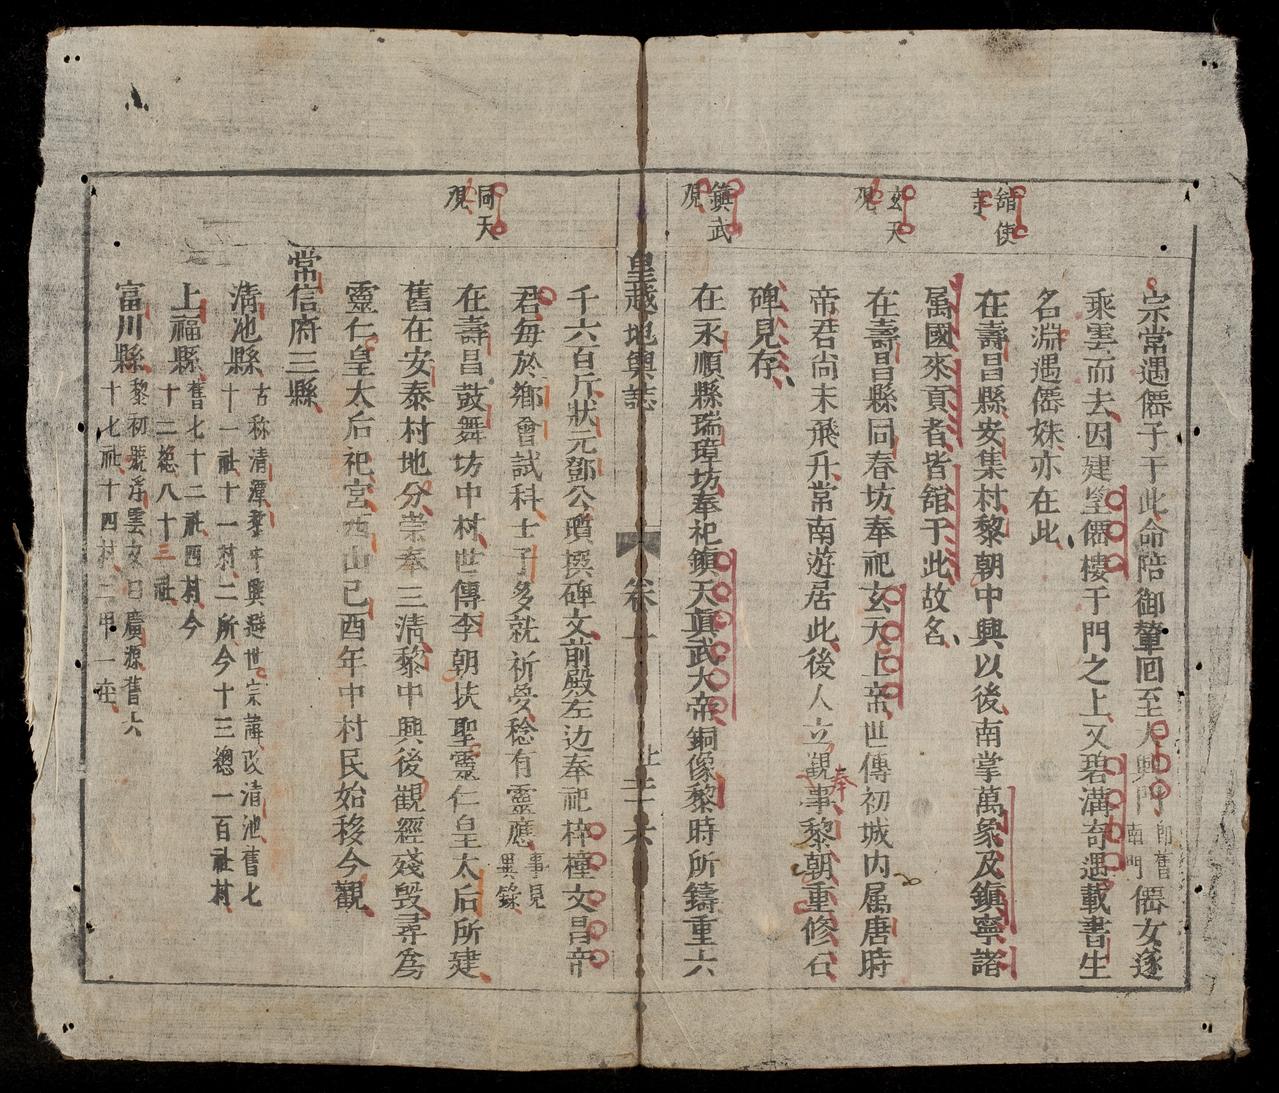 宗常遇僊子于此命陪御輦囘至大興門即舊南門僊女遂
乘雲而去因建望僊樓于門之上又碧溝奇遇載書生
名淵遇僊姝亦在此
舘使寺
在壽昌縣安集村黎朝中興以後南掌萬象及鎭寧諸
属國來貢者皆舘于此故名
玄天观
在壽昌縣同春坊奉祀玄天上帝世傳初城内属唐時
帝君尚未飛升常南遊居此後人立觀奉事黎朝重修石
碑見存
鎭武观
在永順縣瑞璋坊奉祀鎭天眞武大帝銅像黎時所鑄重六
皇越地輿誌 卷一 上 二十六
千六百斤狀元鄧公瓚撰碑文前殿左边奉祀梓橦文昌帝
君每於鄉會試科士子多就祈夢稔有靈應事見異錄
同天观
在壽昌鼓舞坊中村世傳李朝扶聖靈仁皇太后所建
舊在安泰村地分崇奉三清黎中興後觀經殘毁尋爲
靈仁皇太后祀宮西山己酉年中村民始移今觀
常信府三縣
淸池縣古称清潭黎中興避世宗諱改清池舊七十一社十一村二所今十三總一百社村
上福縣舊七十二社四村今十二総八十三社
富川縣黎初號浮雲又曰廣源舊六十七社十四村二甲一庄